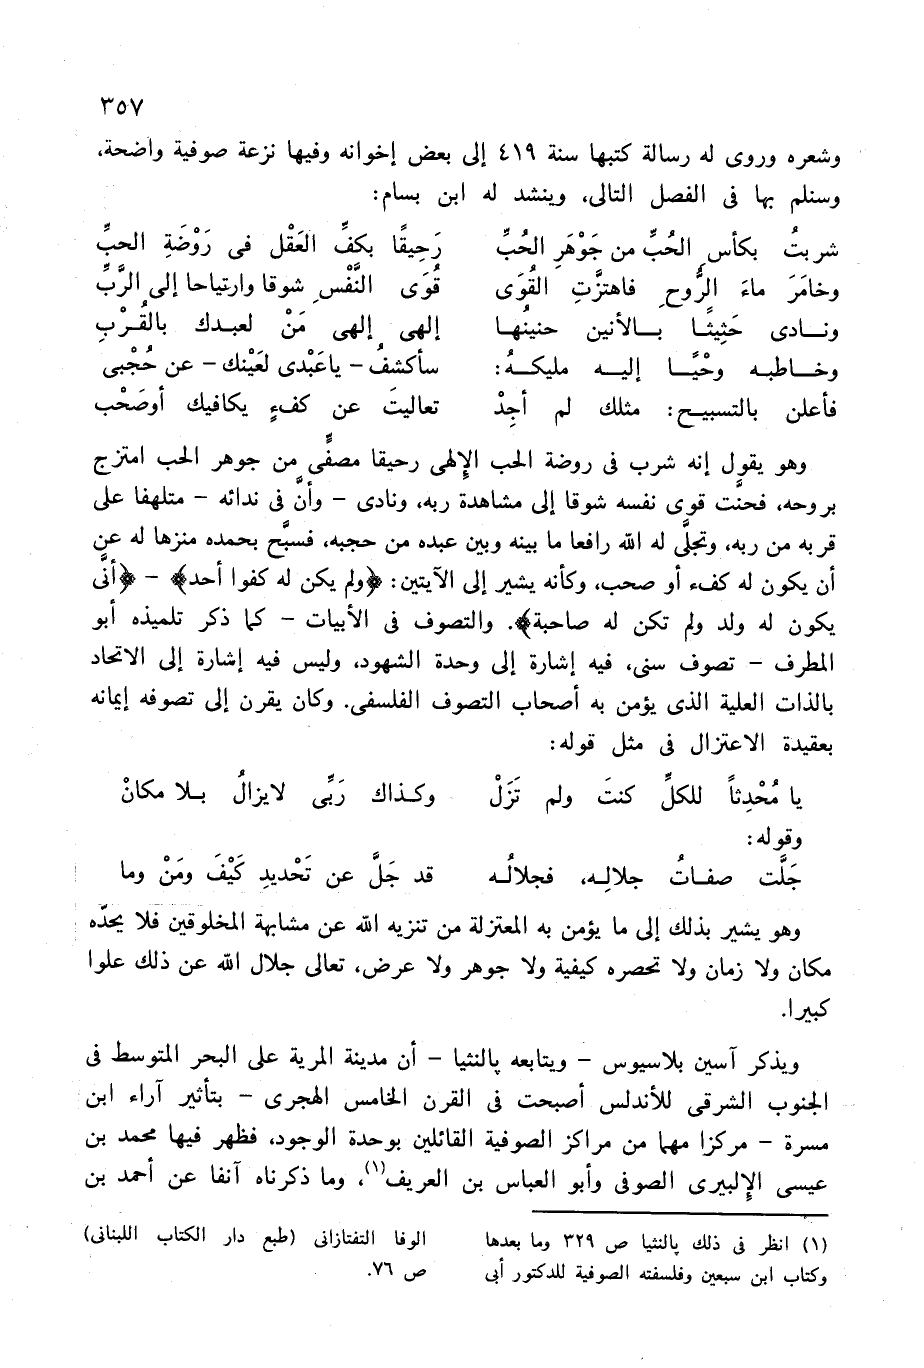 ٣٥٧
وشعره وروى له رسالة كتبها سنة ٤١٩ إلى بعض إخوانه وفيها نزعة صوفية واضحة،
وسنلم بها فى الفصل التالى، وينشد له ابن بسام:
شربتُ بكأس الحُبِّ من جَوْهَرِ الحُبِّ رَحِيقًا بكفِّ العَقْل فى رَوْضَةِ الحبِّ
وخامَرَ ماءَ الرُّوحِ فاهتزَّتِ القُوَى قُوَى النَّفْسِ شوقا وارتياحا إلى الرَّبِّ
ونــادى حَثِيثًـا بــالأنين حنينُهـا إلهى إلهى مَنْ لعبـدك بالقُـرْبِ
وخـاطبـه وحْيًـا إليـه مليكـهُ: سأكشفُ – ياعَبْدى لعَيْنك – عن حُجْبى
فأعلن بالتسبيـح: مثلك لم أجِدْ تعاليتَ عن كفءٍ يكافيك أوصَحْب
وهو يقول إنه شرب فى روضة الحب الإلهى رحيقا مصفًّى من جوهر الحب امتزج
بروحه، فحنَّت قوى نفسه شوقا إلى مشاهدة ربه، ونادى – وأنَّ فى ندائه – متلهفا على
قربه من ربه، وتجلَّى له الله رافعا ما بينه وبين عبده من حجبه، فسبَّح بحمده منزها له عن
أن يكون له كفء أو صحب، وكأنه يشير إلى الآيتين: ﴿ولم يكن له كفوا أحد﴾ – ﴿أنَّى
يكون له ولد ولم تكن له صاحبة﴾. والتصوف فى الأبيات – كما ذكر تلميذه أبو
المطرف – تصوف سنى، فيه إشارة إلى وحدة الشهود، وليس فيه إشارة إلى الاتحاد
بالذات العلية الذى يؤمن به أصحاب التصوف الفلسفى. وكان يقرن إلى تصوفه إيمانه
بعقيدة الاعتزال فى مثل قوله:
يا مُحْدِثاً للكلِّ كنتَ ولم تَزَلْ وكـذاك رَبِّى لايزالُ بـلا مكانْ
وقوله:
جَلَّت صفـاتُ جلالِـه، فجلالُـه قد جَلَّ عن تَحْديدِ كَيْفَ ومَنْ وما
وهو يشير بذلك إلى ما يؤمن به المعتزلة من تنزيه الله عن مشابهة المخلوقين فلا يحدّه
مكان ولا زمان ولا تحصره كيفية ولا جوهر ولا عرض، تعالى جلال الله عن ذلك علوا
كبيرا.
ويذكر آسين بلاسيوس – ويتابعه پالنثيا – أن مدينة المرية على البحر المتوسط فى
الجنوب الشرقى للأندلس أصبحت فى القرن الخامس الهجرى – بتأثير آراء ابن
مسرة – مركزا مهما من مراكز الصوفية القائلين بوحدة الوجود، فظهر فيها محمد بن
عيسى الإلبيرى الصوفى وأبو العباس بن العريف(١)، وما ذكرناه آنفا عن أحمد بن
(١) انظر فى ذلك پالنثيا ص ٣٢٩ وما بعدها
وكتاب ابن سبعين وفلسفته الصوفية للدكتور أبى
الوفا التفتازانى (طبع دار الكتاب اللبنانى)
ص ٧٦.